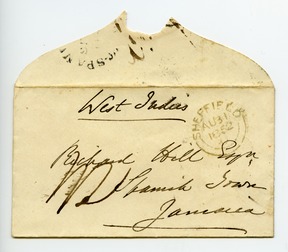 West Indies
SHEFFIELD
AU 31
1852
Richard Hill Esqr
Spanish Town
Jamaica